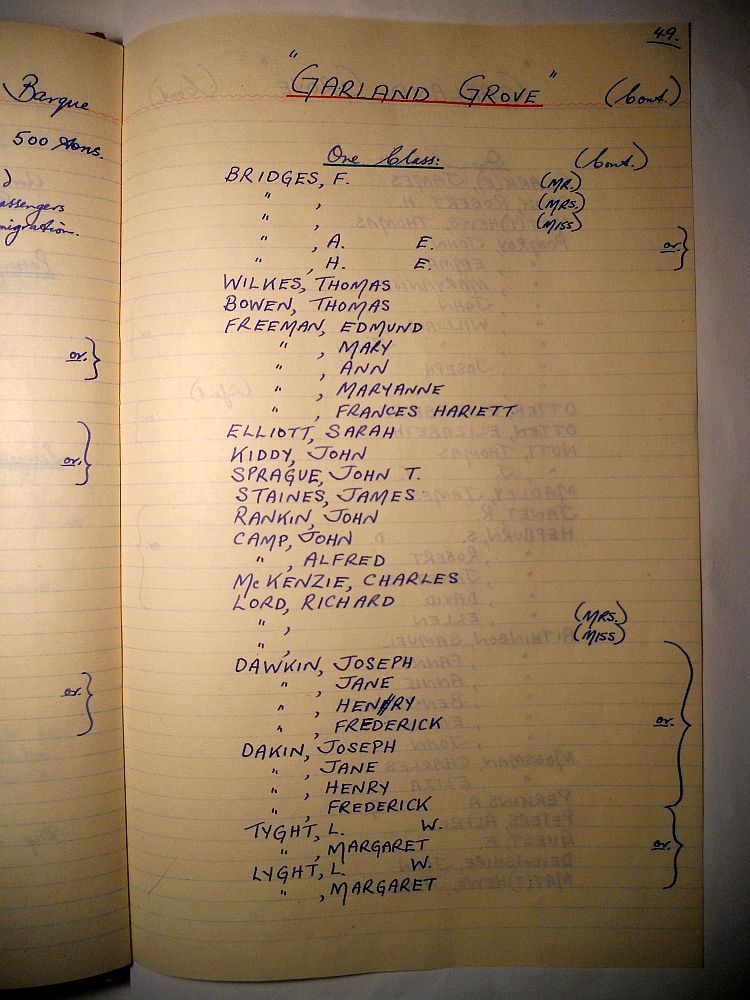 Barque
500 Tons.
assengers
migration.
or.
or.
or.
49.
"GARLAND GROVE" (Cont.)
One Class: (Cont.)
BRIDGES, F. (MR.)
" , (MRS.)
" , (MISS)
" , A. E. or.
" , H. E.
WILKES, THOMAS
BOWEN, THOMAS
FREEMAN, EDMUND
" , MARY
" , ANN
" , MARYANNE
" , FRANCES HARIETT
ELLIOTT, SARAH
KIDDY, JOHN
SPRAGUE, JOHN T.
STAINES, JAMES
RANKIN, JOHN
CAMP, JOHN
" , ALFRED
McKENZIE, CHARLES
LORD, RICHARD
" , (MRS.)
" , (MISS)
DAWKIN, JOSEPH
" , JANE
" , HENRY
" , FREDERICK or.
DAKIN, JOSEPH
" , JANE
" , HENRY
" , FREDERICK
TYGHT, L. W.
" , MARGARET or.
LYGHT, L. W.
" , MARGARET